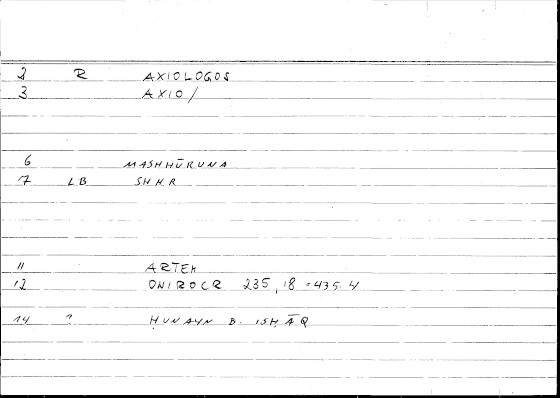 2 R AXIOLOGOS
3 AXIO/
6 MASHHŪRUNA
7 LB SHHR
11 ARTEM
12 ONIROCR 235,18 = 435.4
14 ? HUNAYN B. ISHĀQ